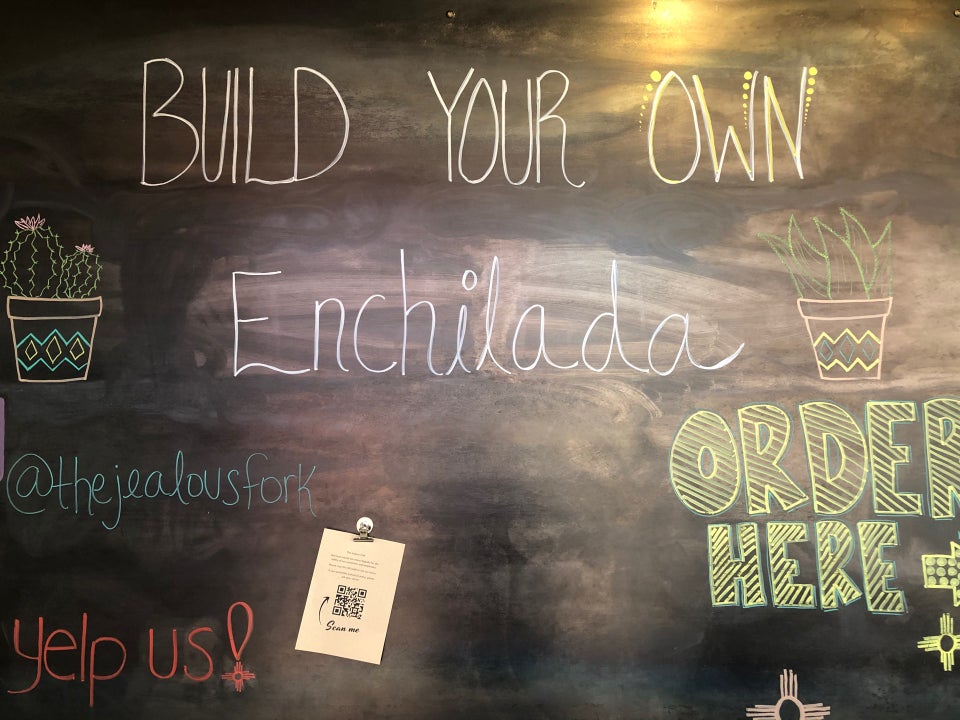 BUILD YOUR OWN
Enchilada
@thejealousfork
ORDER
HERE
Scan me
yelp us!